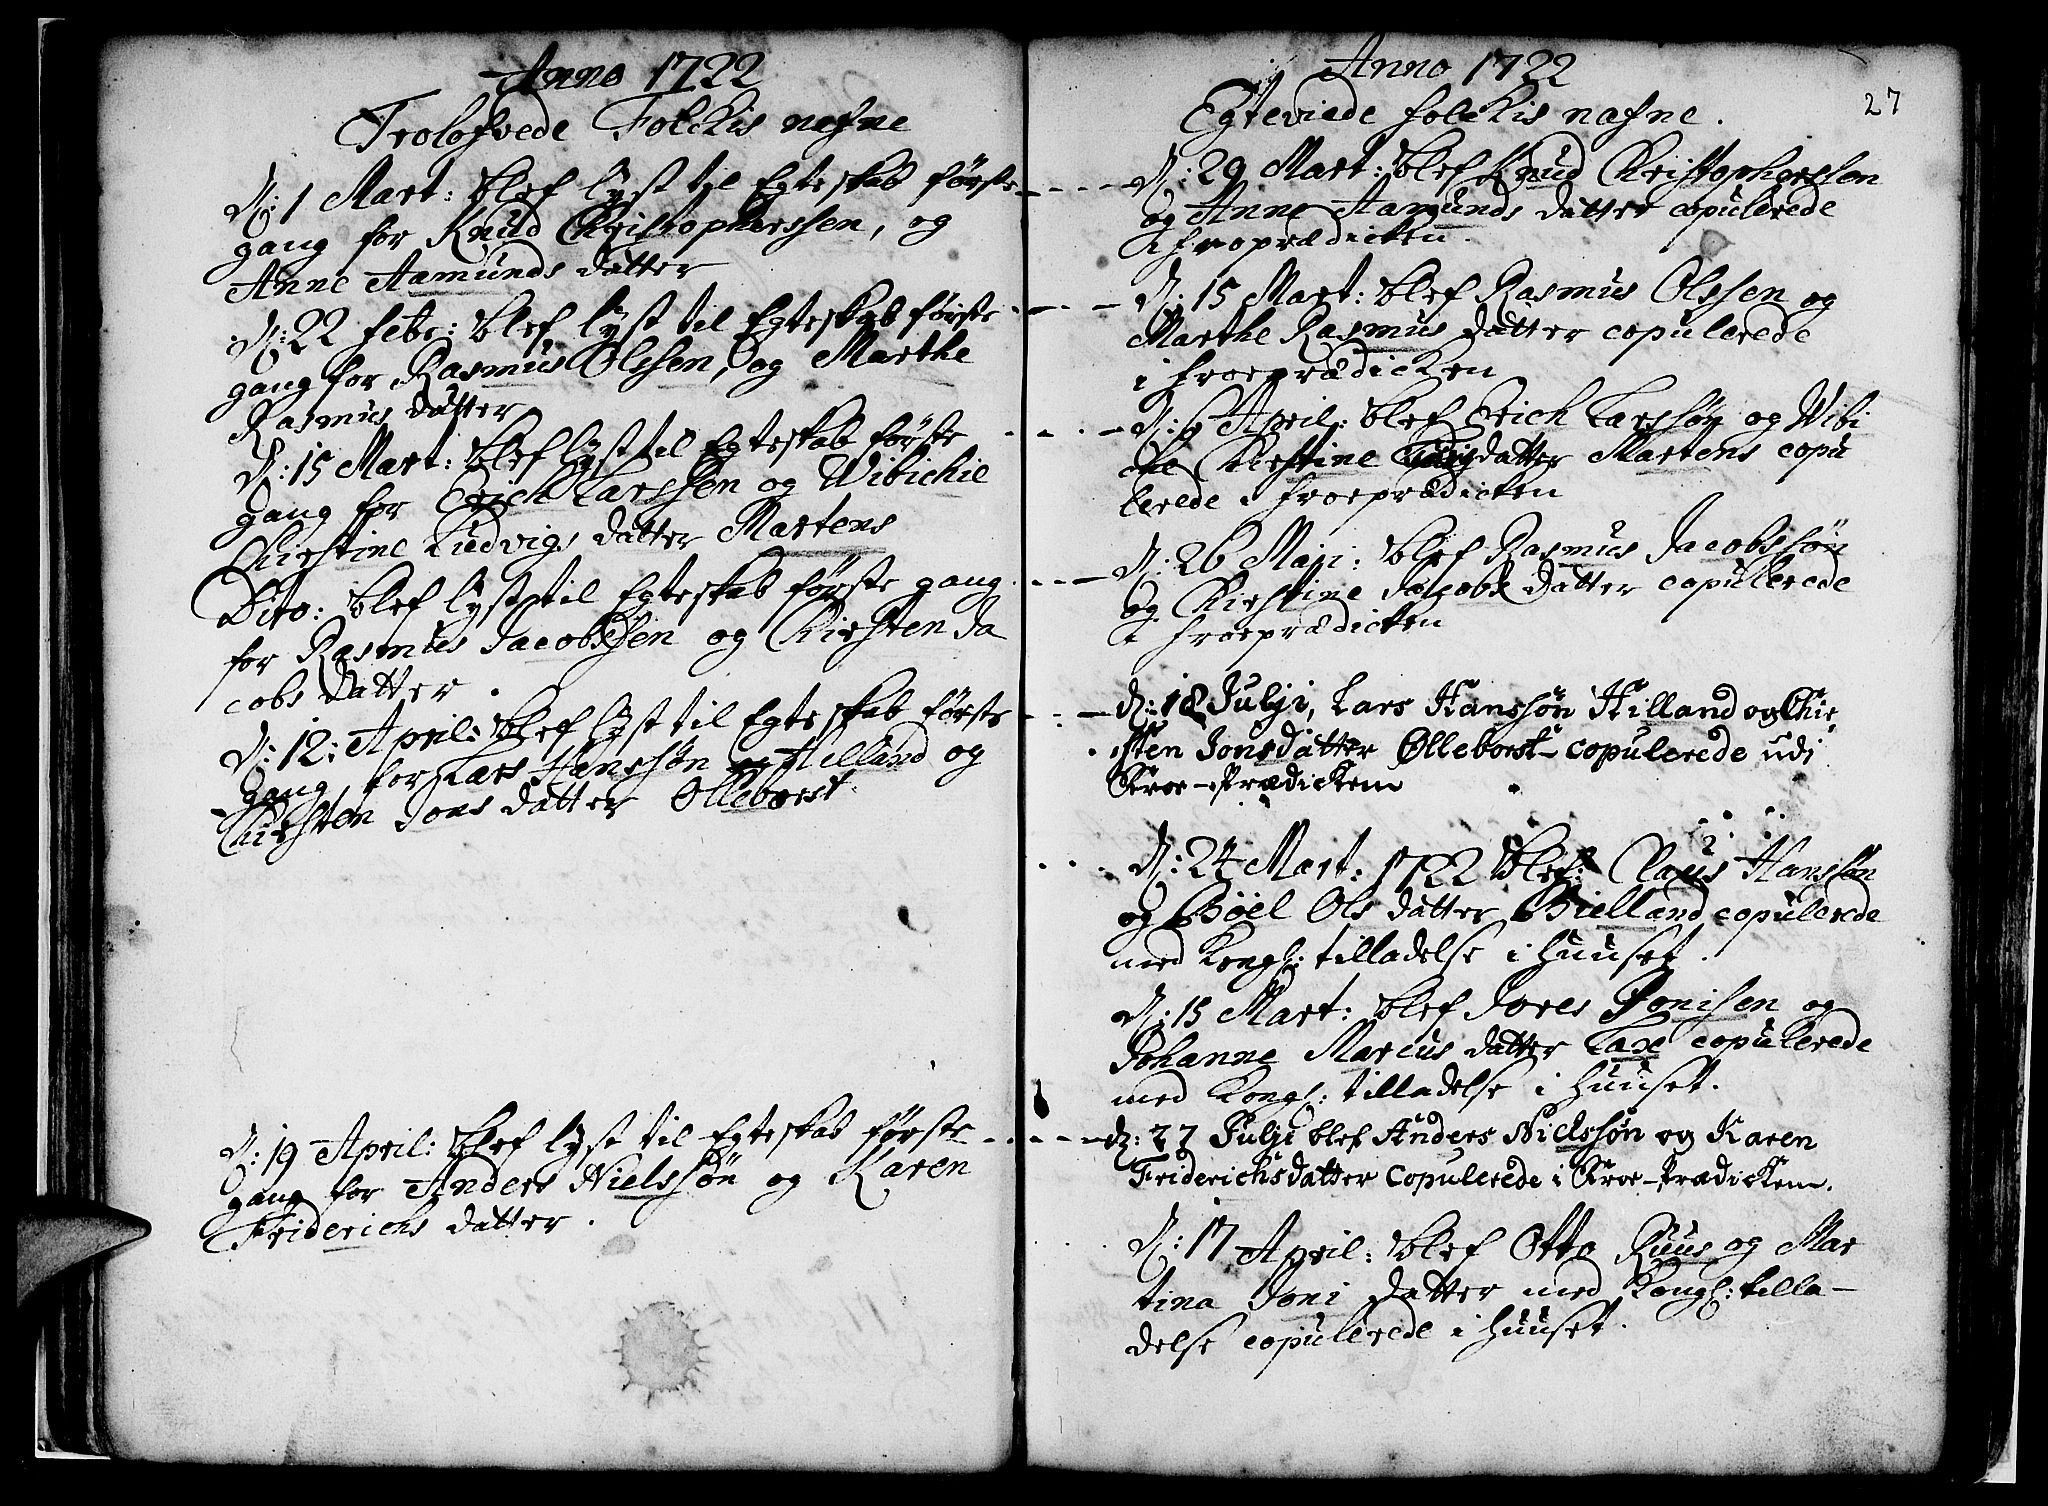 Anno 1722
Trolofvede Folckis nafne
D: 1 Mart: blef lyst til Egteskab første
gang for Knud Christophersen, og
Anne Aamunds datter
D: 22 Febr: blef lyst til Egteskab første
gang for Rasmus Olssen, og Marthe
Rasmus datter
D: 15 Mart: blef lyst til Egteskab første
gang for Erich Larssen og Wibichie
Chirstine Ludvigs datter Martens
Dito: blef lyst til Egteskab første gang
for Rasmus Jacobssen og Chirsten Ja
cobs datter
D: 12: April: blef lyst til Egteskab første
gang for Lars Hanssøn Hilland og
Chirsten Jons datter Ølleborst
D: 19 April: blef lyst til Egteskab første
gang for Anders Nielssøn og Karen
Friderichs datter.
Anno 1722
27
Egteviede folckis nafne.
D: 29 Mart: blef Knud Christophersson
og Anne Aamunds datter copulerede
i froprædicken.
D: 15 Mart: blef Rasmus Olssen og
Marthe Rasmus datter copulerede
i froeprædicken
D: 6 April: blef Erich Larssøn og Wibi
che Chirstine datter Martens copu
lerede i froeprædicken
D: 26 Maji: blef Rasmus Jacobssøn
og Chirstine Jacobs datter copulerede
i froeprædicken
D: 18 Julji, Lars Hanssøn Hilland og Chir
sten Jonsdatter Ølleborst copulerede udi
Froe-Prædicken
D: 24 Mart: 1722 blef Claus Hanssøn
og Bøel Ols datter Bielland copulerede
med Kongl: tilladelse i Huuset.
D: 15 Mart: blef Jores Jonisen og
Johanne Marcus datter Laxe copulerede
med Kongl: tilladelse i Huuset.
D: 27 Julji blef Anders Nielssøn og Karen
Friderichsdatter Copulerede i Froe-Prædicken.
D: 17 April: blef Otto Ruus og Mar
tina Joni datter med Kongl: tilla-
delse copulerede i Huuset.